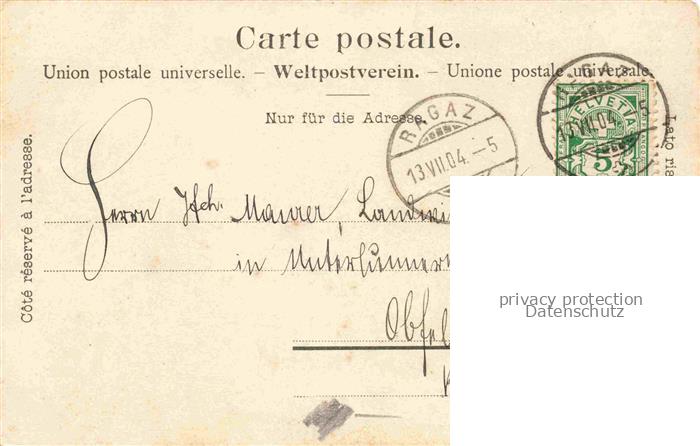 Carte postale.
Union postale universelle. – Weltpostverein. – Unione postale universale.
Nur für die Adresse.
Côté réservé à l'adresse.
Lato ris
RAGAZ
13.VII.04.–5
RAGAZ
13.VII.04.
HELVETIA
5
Herrn Jch. Maurer, Landwi
in
Obfel
privacy protection
Datenschutz